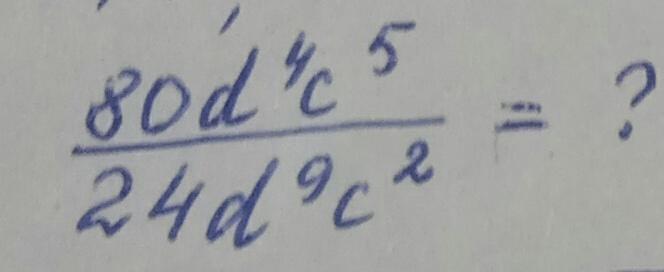 80d⁴c⁵
24d⁹c² = ?